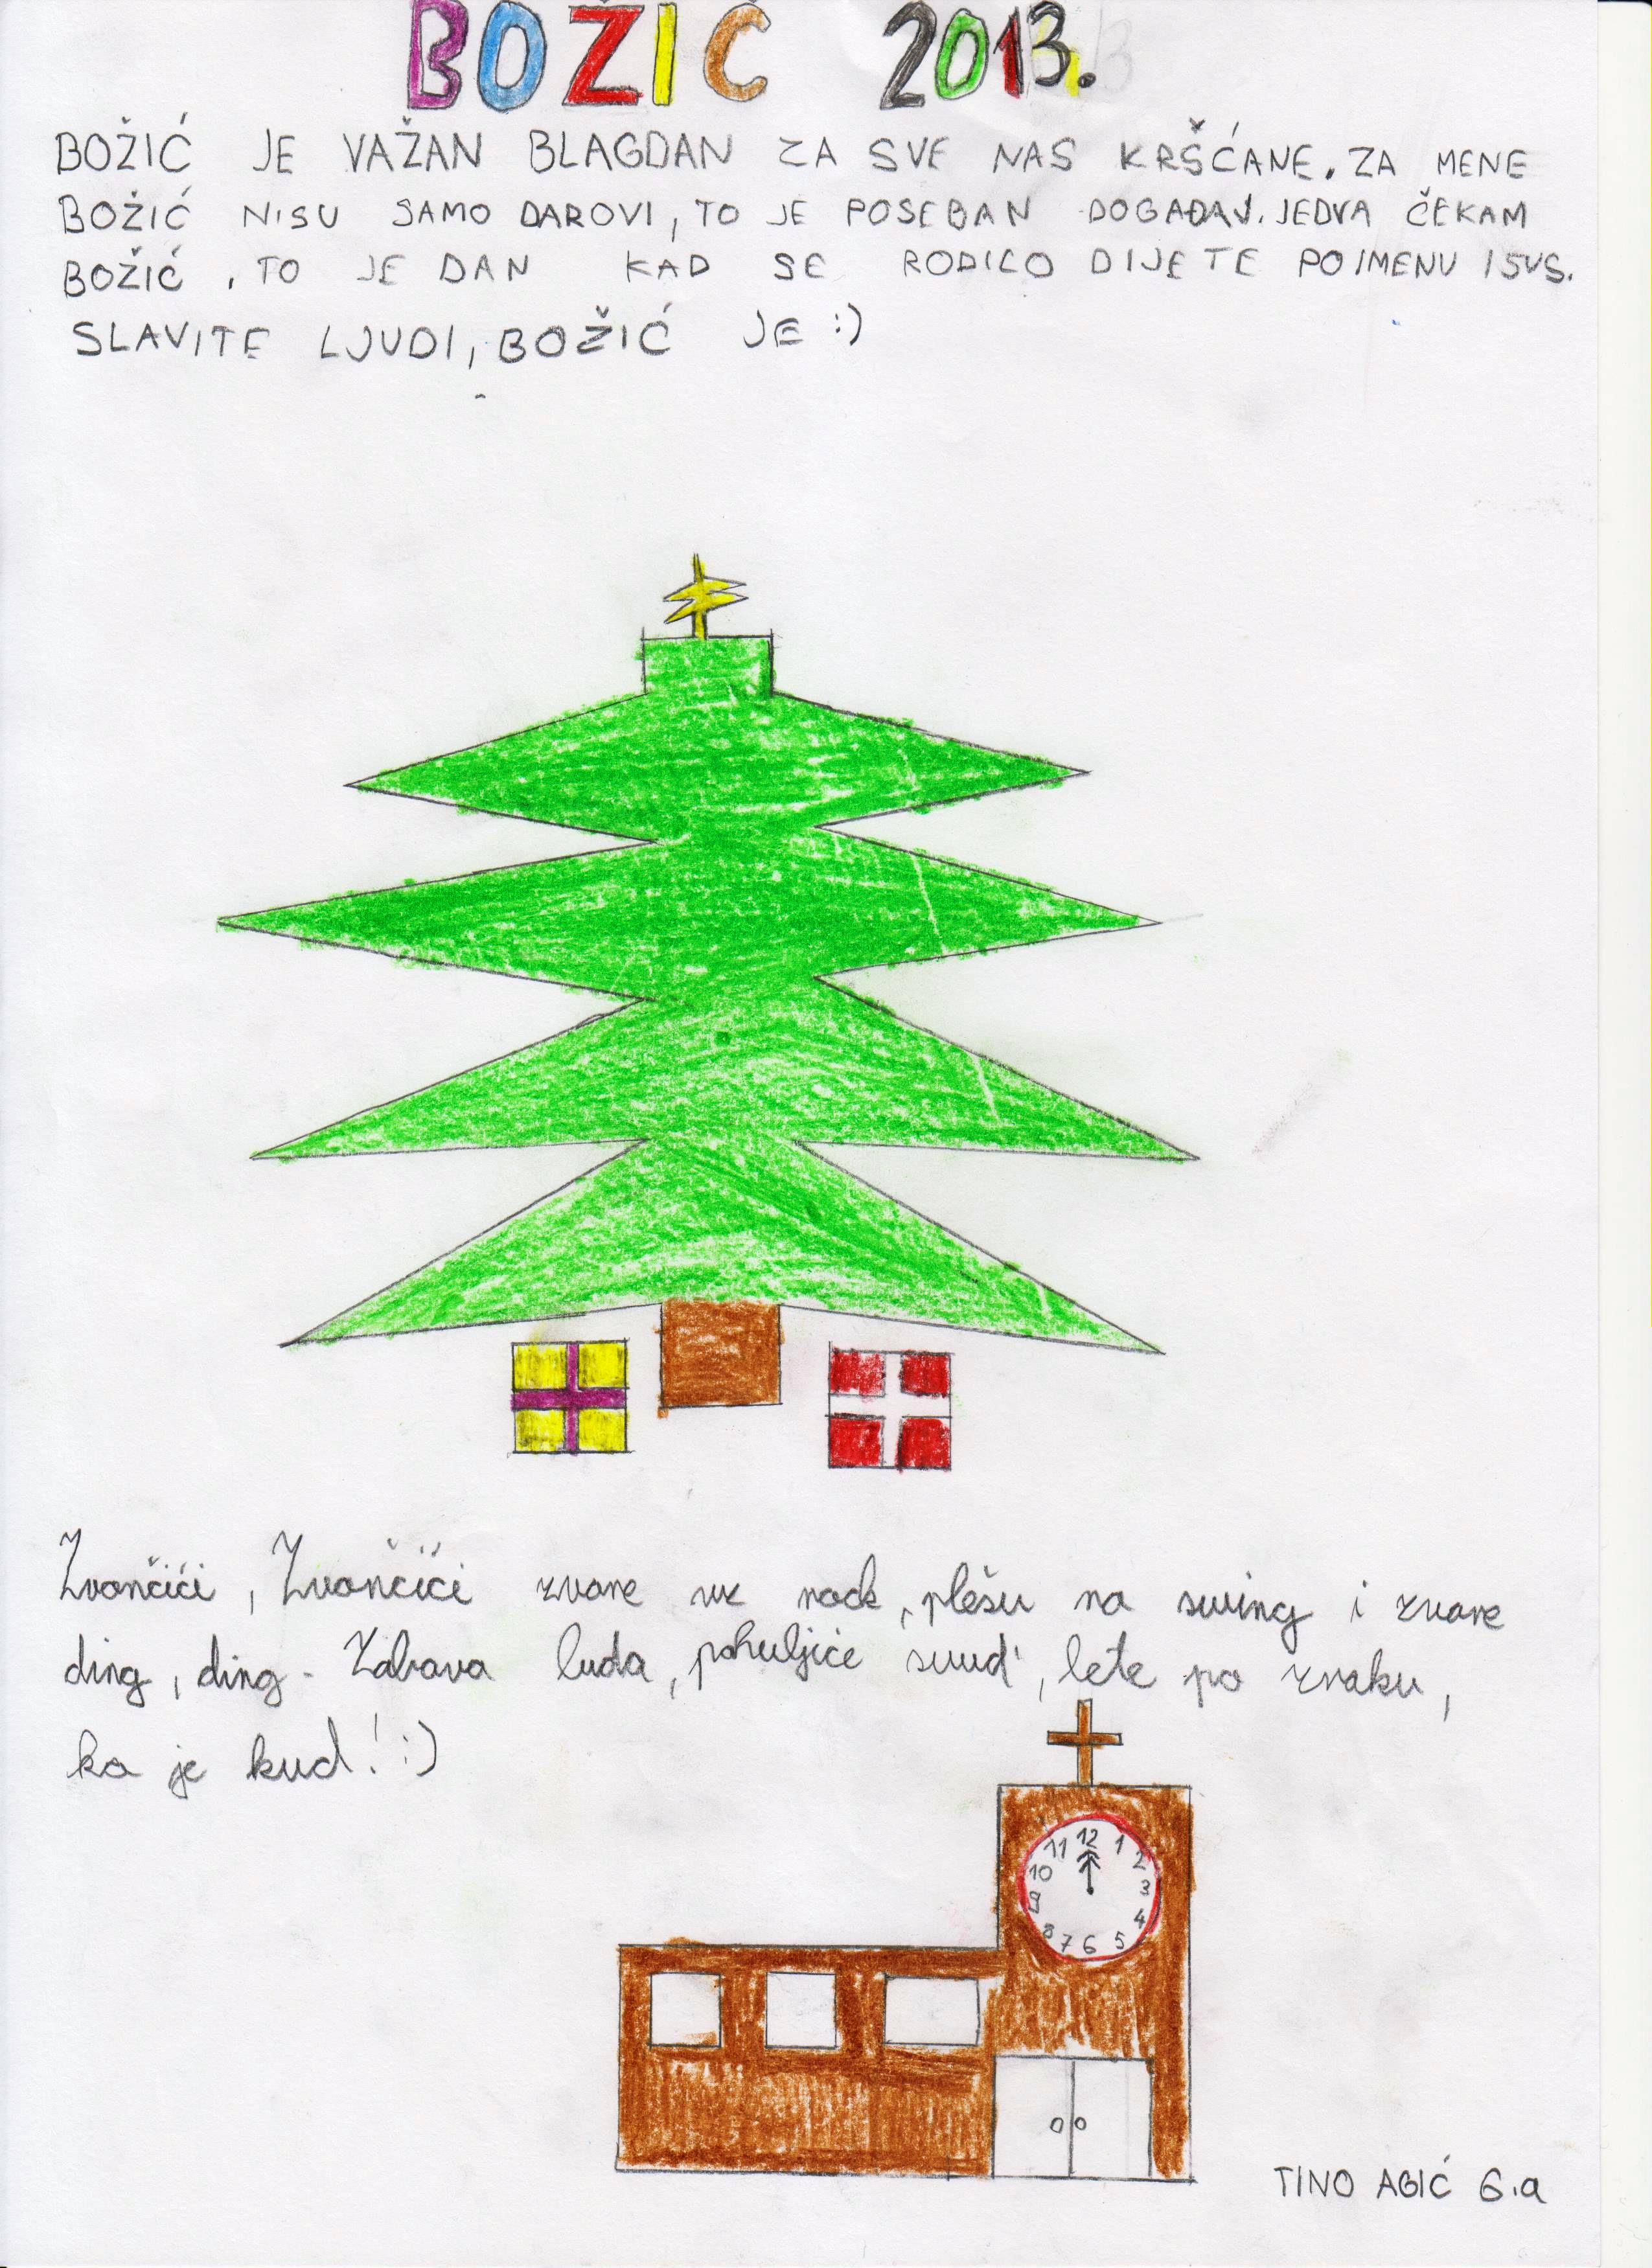 BOŽIĆ 2013.
BOŽIĆ JE VAŽAN BLAGDAN ZA SVE NAS KRŠĆANE. ZA MENE
BOŽIĆ NISU SAMO DAROVI, TO JE POSEBAN DOGAĐAJ. JEDVA ČEKAM
BOŽIĆ, TO JE DAN KAD SE RODILO DIJETE PO IMENU ISUS.
SLAVITE LJUDI, BOŽIĆ JE :)
Zvončići, Zvončići zvone uz rock, plešu na swing i zvone
ding, ding. Zabava luda, pahuljice svud, lete po zraku,
ko je kud! :)
11 12 1
10 2
9 3
8 4
7 6 5
TINO AGIĆ 6.a